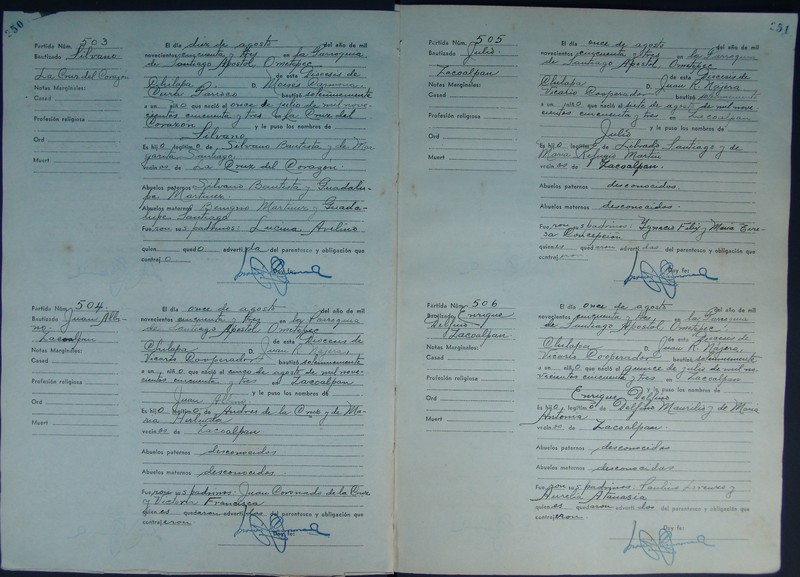 250
Partida Núm. 503
Bautizado Silvano
La Cruz del Corazón
Notas Marginales:
Cased
Profesión religiosa
Ord
Muert
El día diez de agosto del año de mil
novecientos cincuenta y tres en la Parroquia
de Santiago Apostol, Ometepec
de esta Diócesis de
Chilapa D. Moises
Curato Párroco bautizó solemnemente
a un niño que nació el once de julio de mil nove-
cientos cincuenta y tres en La Cruz del
Corazón y le puso los nombres de
Silvano
Es hijo legítimo de Silvano Bautista y de Mar-
garita Santiago
vecinos de La Cruz del Corazón.
Abuelos paternos Silvano Bautista y Guadalu-
pe Martinez
Abuelos maternos Benigno Martinez y Guada-
lupe Santiago
Fueron sus padrinos: Lucina Avelino
quien quedó advertida del parentesco y obligación que
contrajo
Doy fe:
Partida Núm. 504
Bautizado Juan Albi-
no.
Zacoalpan
Notas Marginales:
Cased
Profesión religiosa
Ord
Muert
El día once de agosto del año de mil
novecientos cincuenta y tres en la Parroquia
de Santiago Apostol Ometepec
de esta Diócesis de
Chilapa D. Juan R. Nájera
Vicario Cooperador bautizó solemnemente
a un niño que nació el cinco de agosto de mil nove-
cientos cincuenta y tres en Zacoalpan
y le puso los nombres de
Juan Albino
Es hijo legítimo de Andres de la Cruz y de Ma-
ria
vecinos de Zacoalpan.
Abuelos paternos desconocidos
Abuelos maternos desconocidos.
Fueron sus padrinos: Juan Coronado de la Cruz
y Victoria Francisca
quienes quedaron advertidos del parentesco y obligación que
contrajeron
Doy fe:
251
Partida Núm. 505
Bautizado Julio
Zacoalpan
Notas Marginales:
Cased
Profesión religiosa
Ord
Muert
El día once de agosto del año de mil
novecientos cincuenta y tres en la Parroquia
de Santiago Apostol, Ometepec
de esta Diócesis de
Chilapa D. Juan R. Nájera
Vicario Cooperador bautizó solemnemente
a un niño que nació el siete de agosto de mil nove-
cientos cincuenta y tres en Zacoalpan
y le puso los nombres de
Julio
Es hijo legítimo de Librado Santiago y de
Maria Refugio Martin
vecinos de Zacoalpan.
Abuelos paternos desconocidos.
Abuelos maternos desconocidos.
Fueron sus padrinos: Ygnacio Feliz y Maria Tere-
sa Concepción
quienes quedaron advertidos del parentesco y obligación que
contrajeron.
Doy fe:
Partida Núm. 506
Bautizado Enrique
Delfino
Zacoalpan
Notas Marginales:
Cased
Profesión religiosa
Ord
Muert
El día once de agosto del año de mil
novecientos cincuenta y tres en la Parroquia
de Santiago Apostol Ometepec.
de esta Diócesis de
Chilapa D. Juan R. Nájera,
Vicario Cooperador bautizó solemnemente
a un niño que nació el quince de julio de mil no-
vecientos cincuenta y tres en Zacoalpan
y le puso los nombres de
Enrique Delfino
Es hijo legítimo de Delfino Maurilio y de Maria
Antonia
vecinos de Zacoalpan.
Abuelos paternos desconocidos
Abuelos maternos desconocidos
Fueron sus padrinos: Paulino Lorenzo y
Aurelia Atanasia
quienes quedaron advertidos del parentesco y obligación que
contrajeron.
Doy fe: